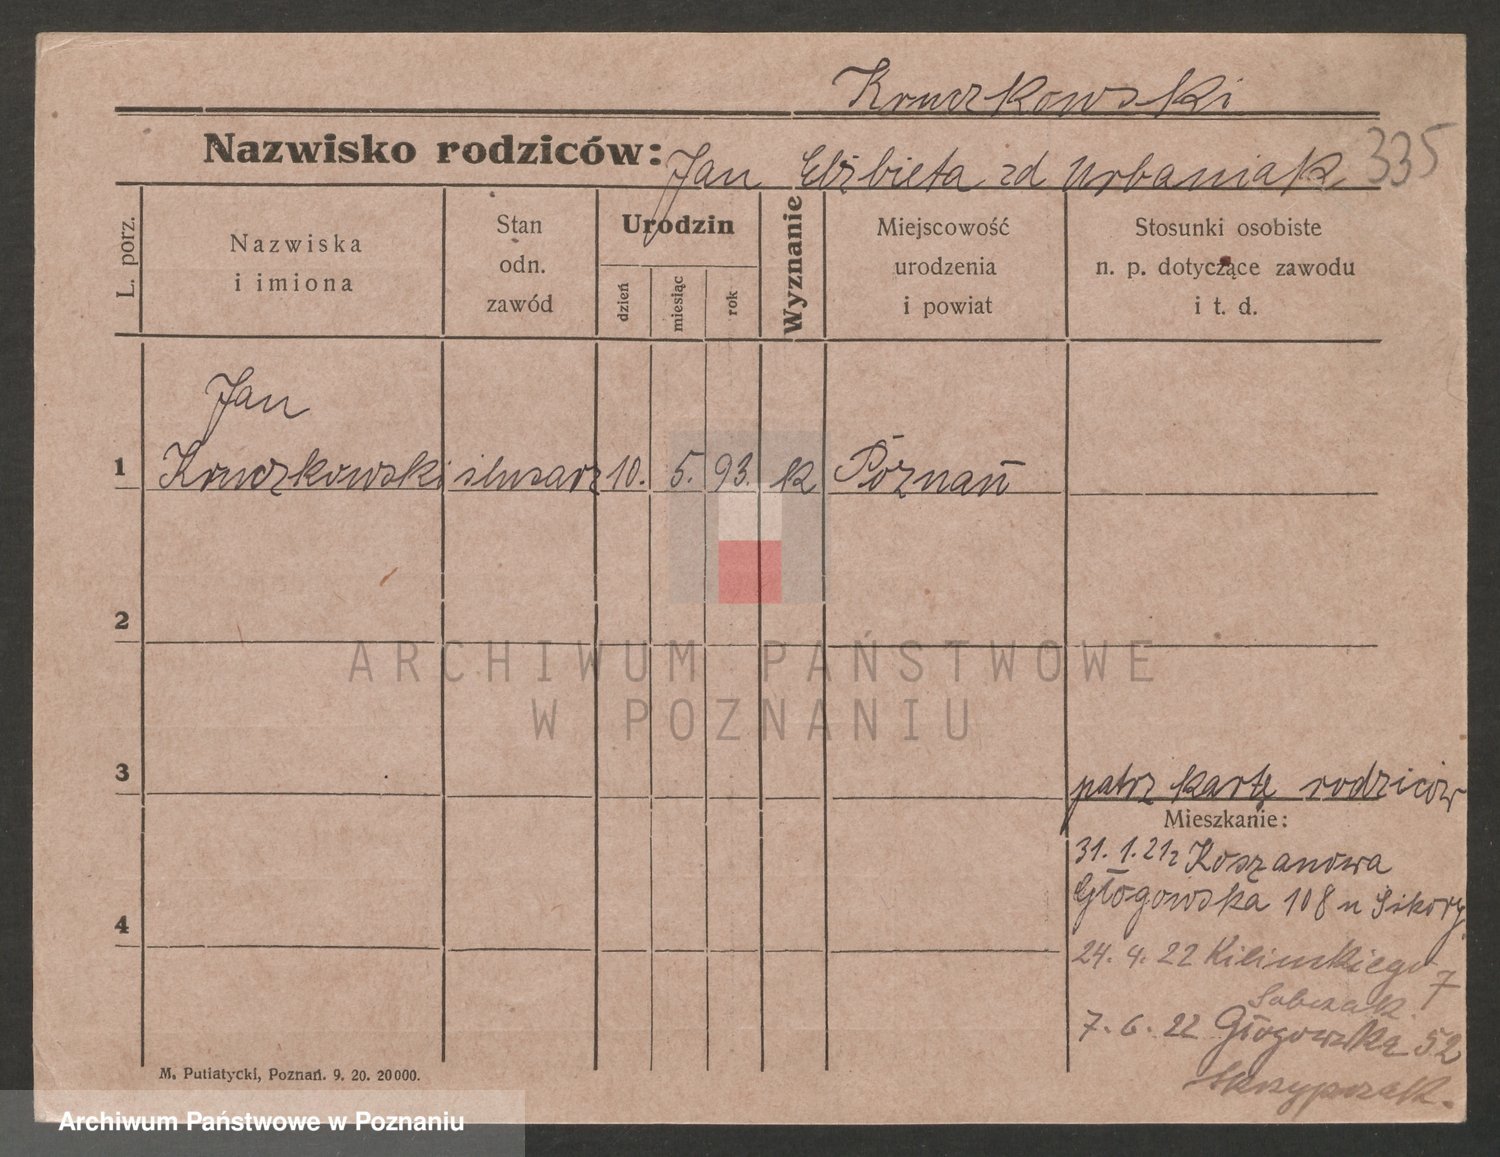 Kruczkowski
Nazwisko rodziców: Jan Elżbieta zd Urbaniak 335
L. porz.
Nazwiska
i imiona
Stan
odn.
zawód
Urodzin
dzień
miesiąc
rok
Wyznanie
Miejscowość
urodzenia
i powiat
Stosunki osobiste
n. p. dotyczące zawodu
i t. d.
Jan
1 Kruczkowski ślusarz 10. 5. 93. k Poznań
2
3
patrz kartę rodziców
Mieszkanie:
31. 1. 21 z Koszanowa
Głogowska 108 u Sikory
4
24. 4. 22 Kilińskiego 7
Sobczak
7. 6. 22 Głogowska 52
Skrzypczak.
M. Putiatycki, Poznań. 9. 20. 20000.
ARCHIWUM PAŃSTWOWE
W POZNANIU
Archiwum Państwowe w Poznaniu